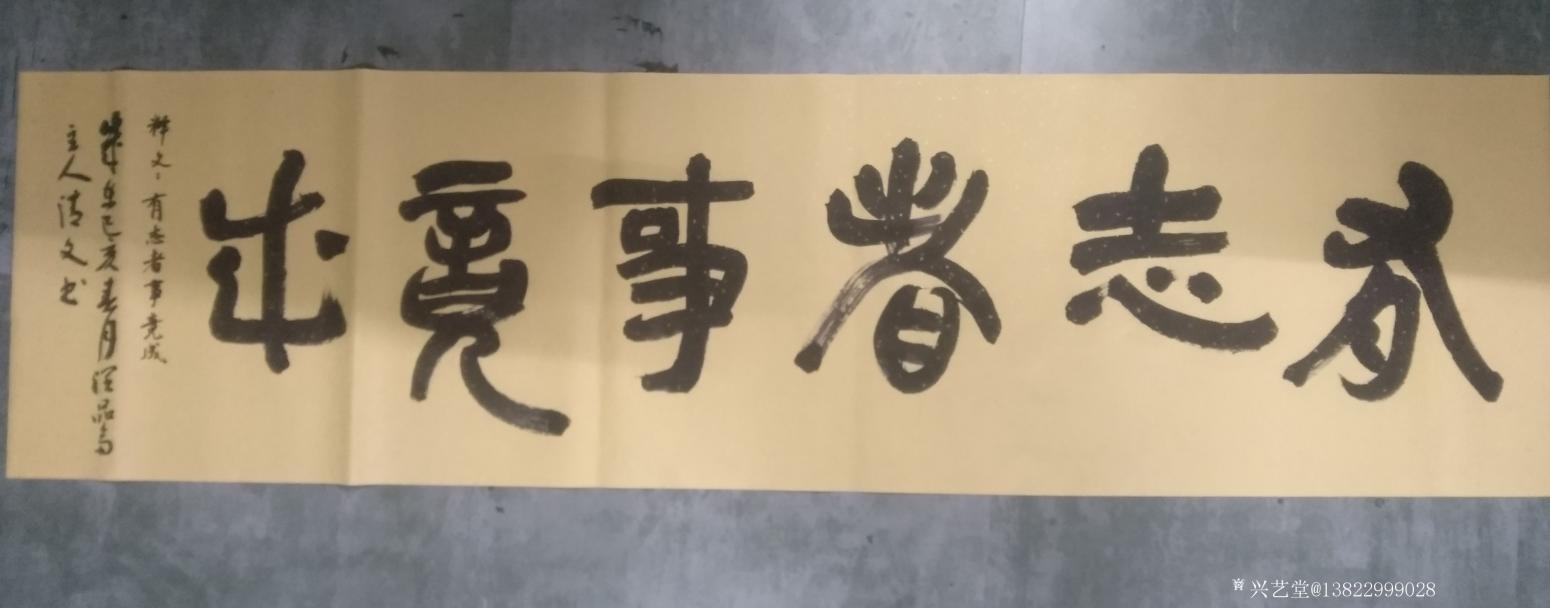 有志者事竟成
释文：有志者事竟成
岁在己亥春月 品
主人清文书
兴艺堂@13822999028